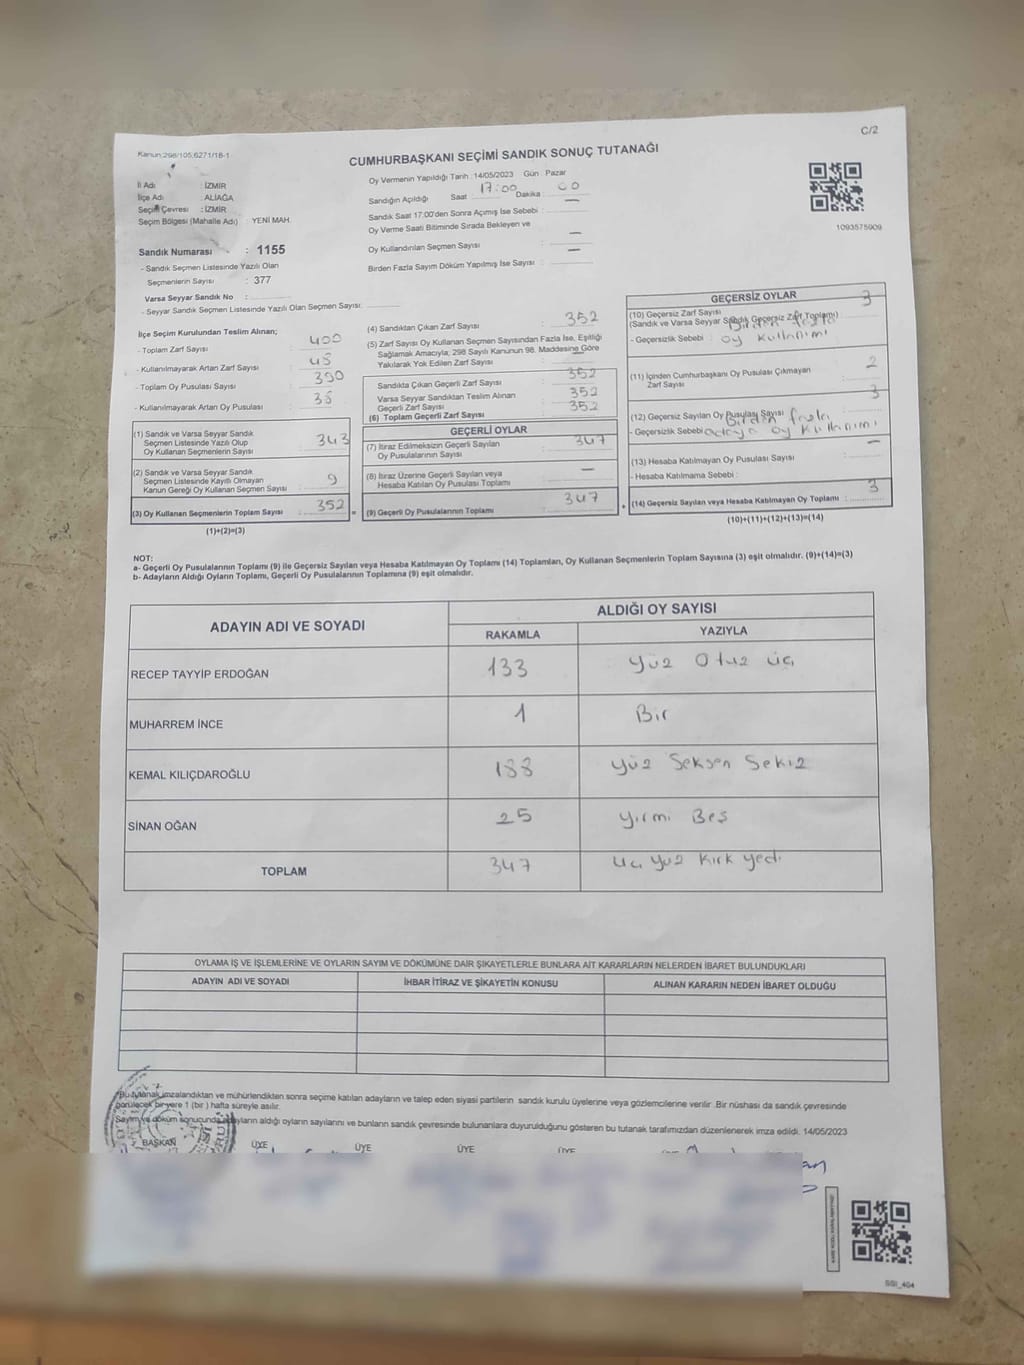 Kanun:298/105;6271/18-1
C/2
CUMHURBAŞKANI SEÇİMİ SANDIK SONUÇ TUTANAĞI
İl Adı : İZMİR
İlçe Adı : ALİAĞA
Seçim Çevresi : İZMİR
Seçim Bölgesi (Mahalle Adı) : YENİ MAH.
Sandık Numarası : 1155
- Sandık Seçmen Listesinde Yazılı Olan
Seçmenlerin Sayısı : 377
Varsa Seyyar Sandık No :
- Seyyar Sandık Seçmen Listesinde Yazılı Olan Seçmen Sayısı:
Oy Vermenin Yapıldığı Tarih :14/05/2023 Gün : Pazar
Sandığın Açıldığı Saat : 17:00 Dakika : 00
Sandık Saat 17.00'den Sonra Açımış İse Sebebi : —
Oy Verme Saati Bitiminde Sırada Bekleyen ve
Oy Kullandırılan Seçmen Sayısı : —
Birden Fazla Sayım Döküm Yapılmış İse Sayısı : —
1093575909
İlçe Seçim Kurulundan Teslim Alınan;
- Toplam Zarf Sayısı : 400
- Kullanılmayarak Artan Zarf Sayısı : 48
- Toplam Oy Pusulası Sayısı : 390
- Kullanılmayarak Artan Oy Pusulası : 38
(1) Sandık ve Varsa Seyyar Sandık
Seçmen Listesinde Yazılı Olup
Oy Kullanan Seçmenlerin Sayısı : 343
(2) Sandık ve Varsa Seyyar Sandık
Seçmen Listesinde Kayıtlı Olmayan
Kanun Gereği Oy Kullanan Seçmen Sayısı : 9
(3) Oy Kullanan Seçmenlerin Toplam Sayısı : 352
(1)+(2)=(3)
(4) Sandıktan Çıkan Zarf Sayısı : 352
(5) Zarf Sayısı Oy Kullanan Seçmen Sayısından Fazla İse, Eşitliği
Sağlamak Amacıyla; 298 Sayılı Kanunun 98. Maddesine Göre
Yakılarak Yok Edilen Zarf Sayısı : —
Sandıkta Çıkan Geçerli Zarf Sayısı : 352
Varsa Seyyar Sandıktan Teslim Alınan
Geçerli Zarf Sayısı : 352
(6) Toplam Geçerli Zarf Sayısı : 352
GEÇERLİ OYLAR
(7) İtiraz Edilmeksizin Geçerli Sayılan
Oy Pusulalarının Sayısı : 347
(8) İtiraz Üzerine Geçerli Sayılan veya
Hesaba Katılan Oy Pusulası Toplamı : —
(9) Geçerli Oy Pusulalarının Toplamı : 347
GEÇERSİZ OYLAR
(10) Geçersiz Zarf Sayısı : 3
(Sandık ve Varsa Seyyar Sandık Geçersiz Zarf Toplamı)
- Geçersizlik Sebebi : Birden fazla oy kullanımı
(11) İçinden Cumhurbaşkanı Oy Pusulası Çıkmayan
Zarf Sayısı : 2
(12) Geçersiz Sayılan Oy Pusulası Sayısı : 3
- Geçersizlik Sebebi : Birden fazla adaya oy kullanımı
(13) Hesaba Katılmayan Oy Pusulası Sayısı : —
- Hesaba Katılmama Sebebi :
(14) Geçersiz Sayılan veya Hesaba Katılmayan Oy Toplamı : 3
(10)+(11)+(12)+(13)=(14)
NOT:
a- Geçerli Oy Pusulalarının Toplamı (9) ile Geçersiz Sayılan veya Hesaba Katılmayan Oy Toplamı (14) Toplamları, Oy Kullanan Seçmenlerin Toplam Sayısına (3) eşit olmalıdır. (9)+(14)=(3)
b- Adayların Aldığı Oyların Toplamı, Geçerli Oy Pusulalarının Toplamına (9) eşit olmalıdır.
ADAYIN ADI VE SOYADI ALDIĞI OY SAYISI
RAKAMLA YAZIYLA
RECEP TAYYİP ERDOĞAN 133 Yüz Otuz üç
MUHARREM İNCE 1 Bir
KEMAL KILIÇDAROĞLU 188 Yüz Seksen Sekiz
SİNAN OĞAN 25 Yirmi Beş
TOPLAM 347 Üç yüz Kırk yedi
OYLAMA İŞ VE İŞLEMLERİNE VE OYLARIN SAYIM VE DÖKÜMÜNE DAİR ŞİKAYETLERLE BUNLARA AİT KARARLARIN NELERDEN İBARET BULUNDUKLARI
ADAYIN ADI VE SOYADI İHBAR İTİRAZ VE ŞİKAYETİN KONUSU ALINAN KARARIN NEDEN İBARET OLDUĞU
Bu tutanak imzalandıktan ve mühürlendikten sonra seçime katılan adayların ve talep eden siyasi partilerin sandık kurulu üyelerine veya gözlemcilerine verilir .Bir nüshası da sandık çevresinde
görülecek bir yere 1 (bir ) hafta süreyle asılır.
Sayım ve döküm sonucunda adayların aldığı oyların sayılarını ve bunların sandık çevresinde bulunanlara duyurulduğunu gösteren bu tutanak tarafımızdan düzenlenerek imza edildi. 14/05/2023
BAŞKAN ÜYE ÜYE ÜYE ÜYE
SSI_404